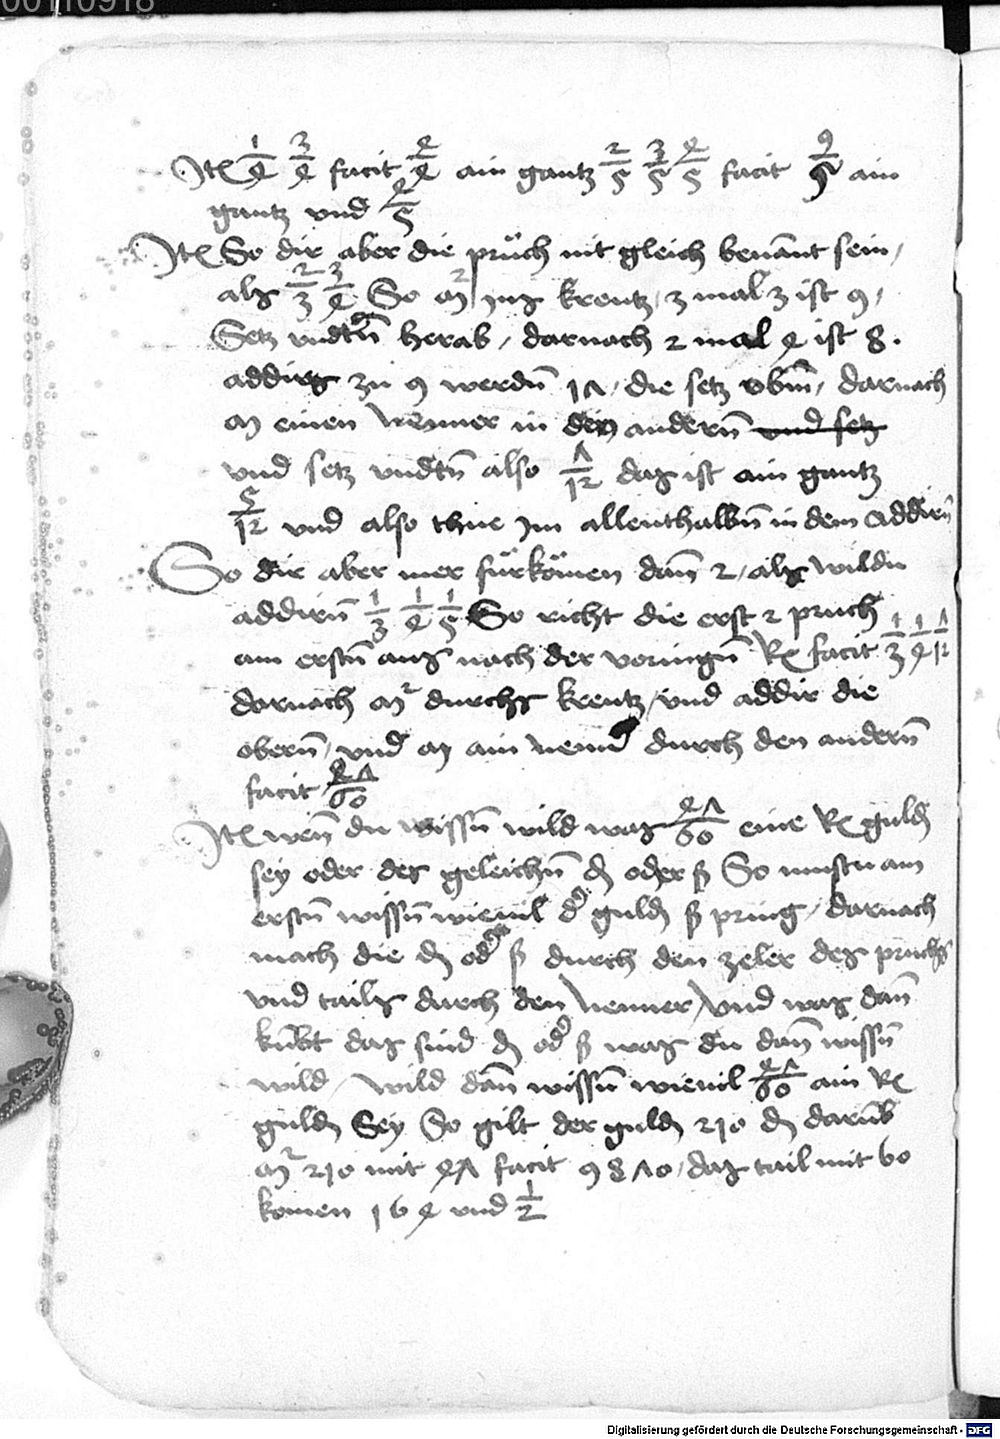 00110918
Itē 1/4 3/4 facit 4/4 ain gantz 2/5 3/5 4/5 facit 9/5 ain
gantz vnd 4/5
Itē So dir aber die prüch nit gleich benānt sein /
alß 2/3 3/4 So m² inß kreutz / 3 mal 3 ist 9 /
Setz vndtn̄ herab / darnach 2 mal 4 ist 8 .
addirß zu 9 werdn̄ 17 / die setz obm̄ / darnach
m einen Nenner in den andern̄ vnd setz
vnd setz vndtn̄ also 7/12 daß ist ain gantz
5/12 vnd also thue im allenthalbn̄ in dem addirn̄
So dir aber mer fürkömen dan̄ 2 / alß wildu
addirn̄ 1/3 1/4 1/5 So richt die erst 2 pruch
am erstn̄ auß nach der voringn̄ Re facit 1/3 1/4 7/12
darnach m² durchs kreutz / vnd addir die
obern̄ / vnd m ain nenner durch den andern̄
facit 47/60
Itē wen̄ du wissn̄ wild waß 47/60 eine Re guldn
sey oder des geleichn̄ dn oder ß So mustu am
erstn̄ wissn̄ wieuil d' guldn ß pring / darnach
mach die dn od' ß durch den zeler deß pruchß
vnd tailß durch den Nenner / vnd waß dan̄
kūbt daß sind dn od' ß waß du dan̄ wissn̄
wild / Wild dan̄ wissn̄ wieuil 47/60 ain Re
guldn Sey So gilt der guldn 210 dn darūb
m² 210 mit 47 facit 9870 / daß tail mit 60
komen 164 vnd 1/2
Digitalisierung gefördert durch die Deutsche Forschungsgemeinschaft - DFG